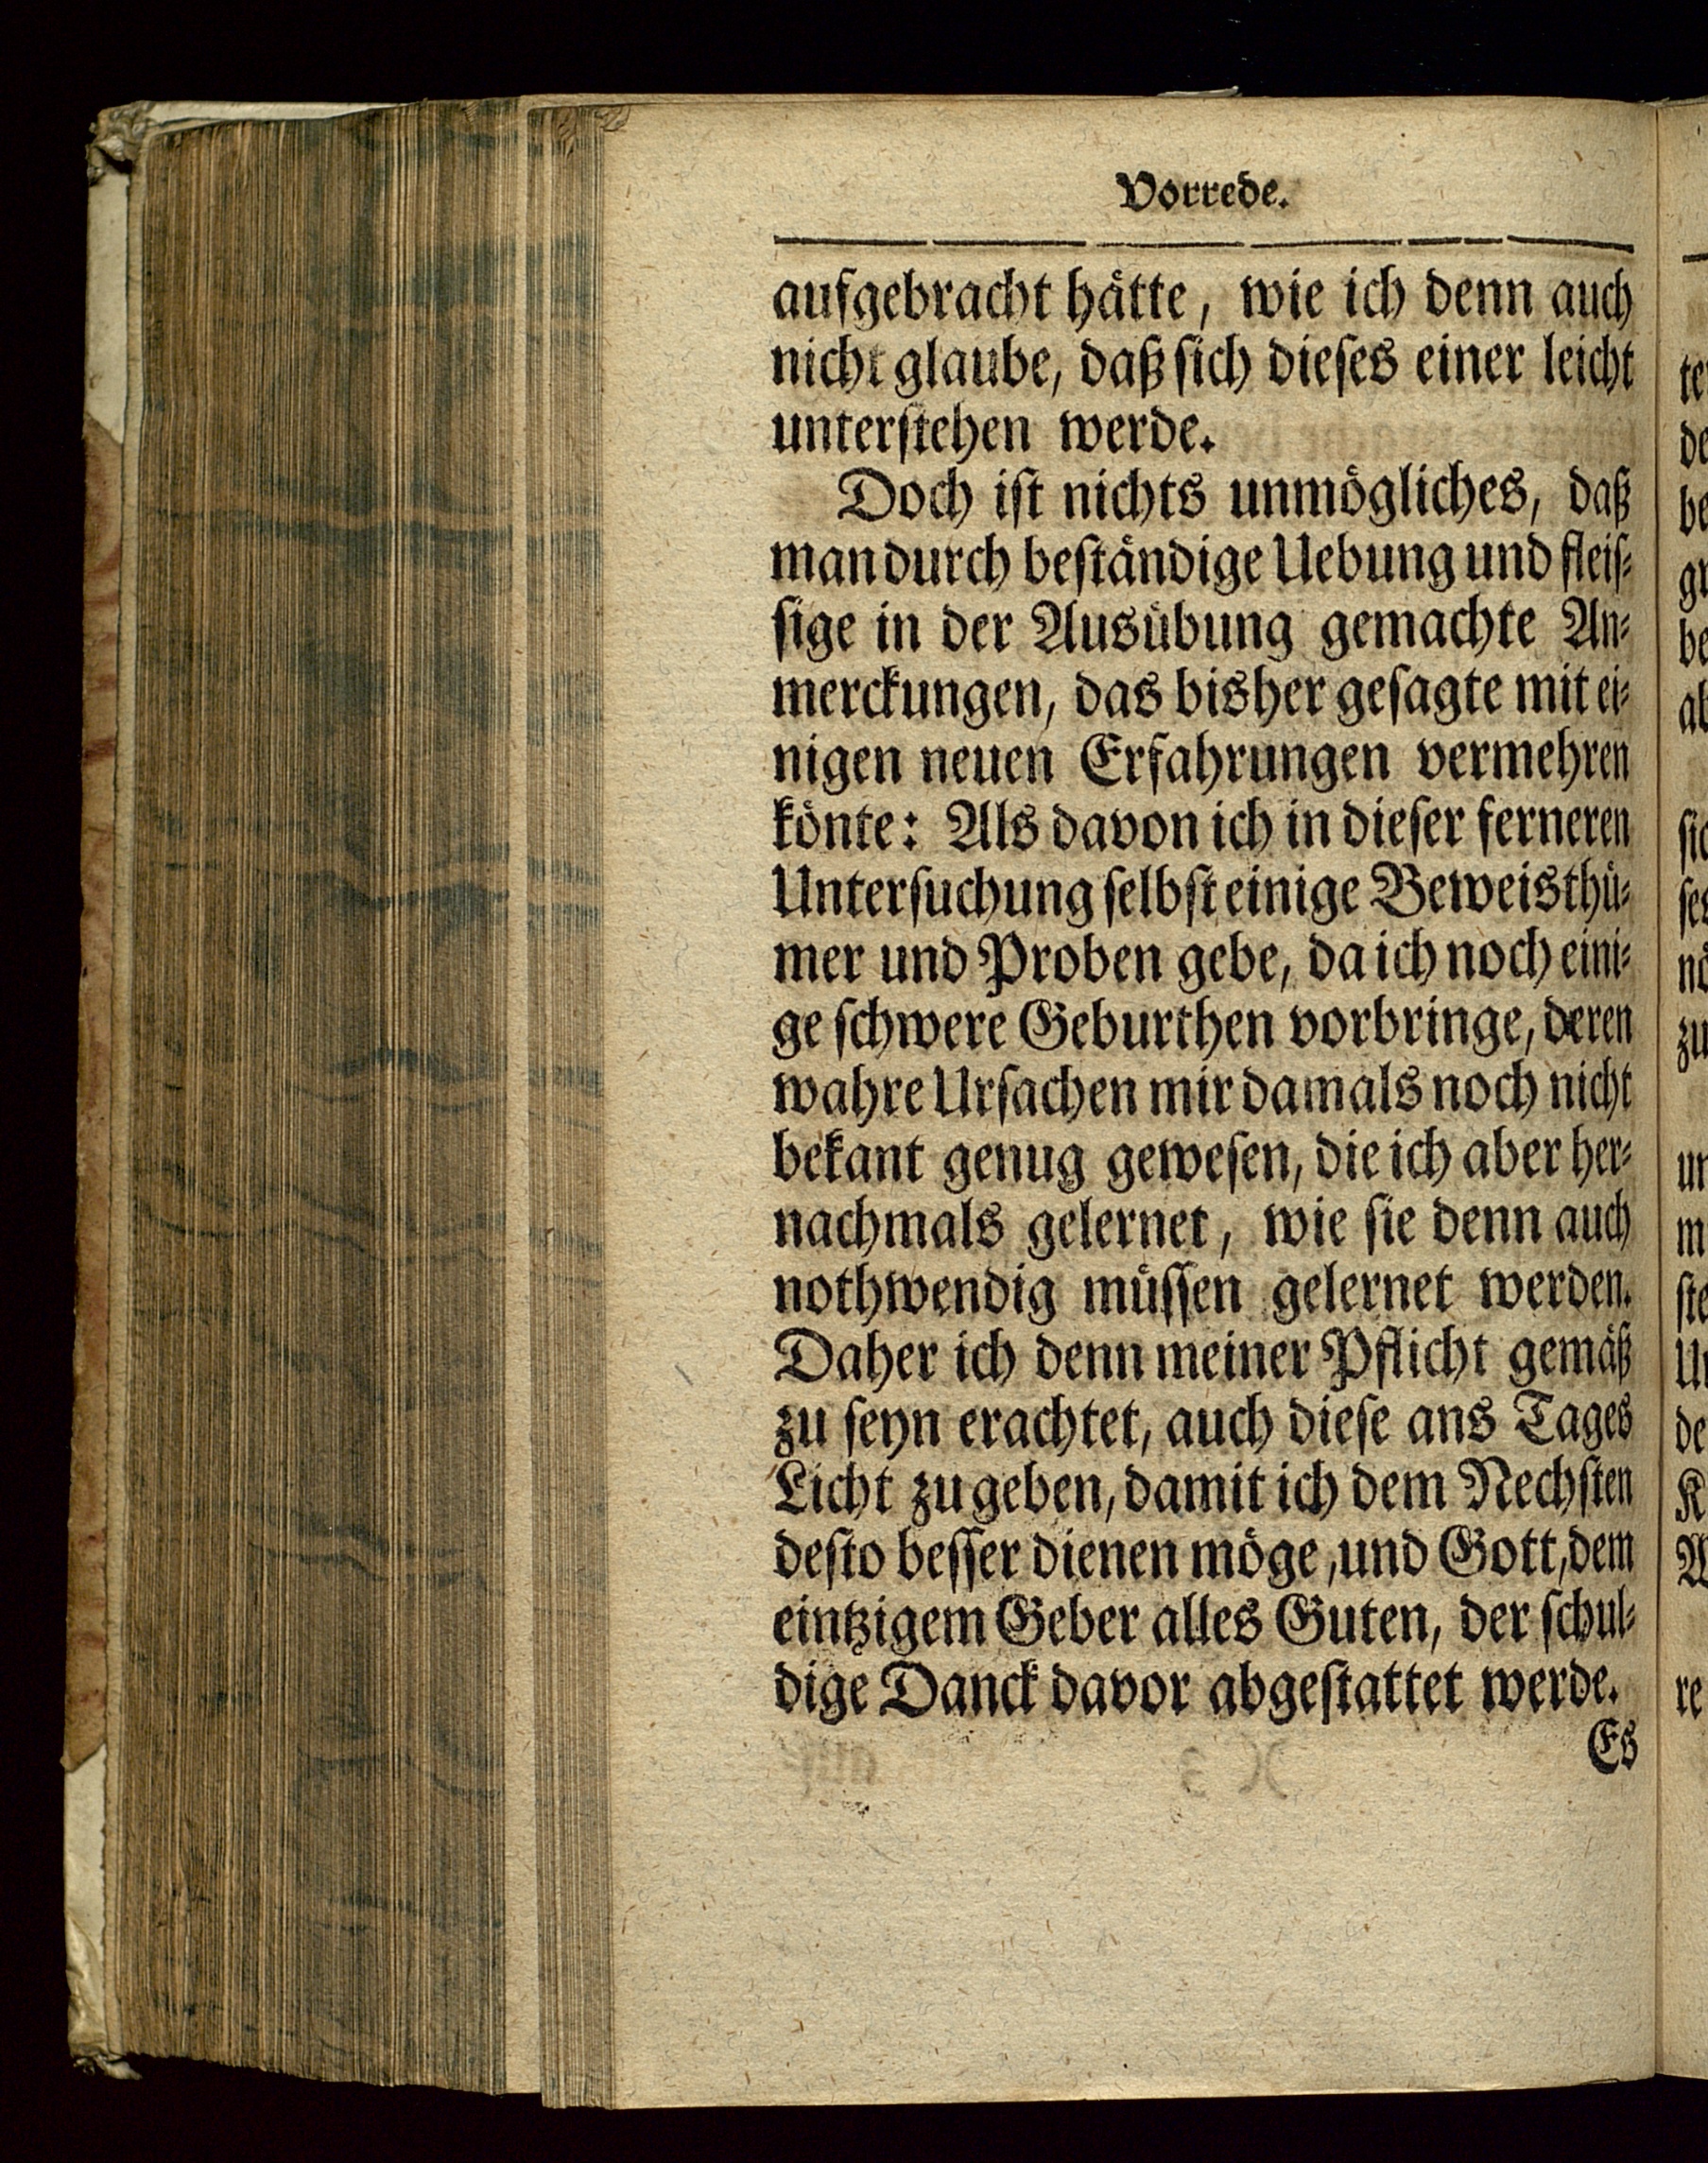 Vorrede.
aufgebracht hätte, wie ich denn auch
nicht glaube, daß ſich dieſes einer leicht
unterſtehen werde.
Doch iſt nichts unmögliches, daß
man durch beſtändige Uebung und fleiſ⸗
ſige in der Ausübung gemachte An⸗
merckungen, das bisher geſagte mit ei⸗
nigen neuen Erfahrungen vermehren
könte: Als davon ich in dieſer ferneren
Unterſuchung ſelbſt einige Beweisthü⸗
mer und Proben gebe, da ich noch eini⸗
ge ſchwere Geburthen vorbringe, deren
wahre Urſachen mir damals noch nicht
bekant genug geweſen, die ich aber her⸗
nachmals gelernet, wie ſie denn auch
nothwendig müſſen gelernet werden.
Daher ich denn meiner Pflicht gemäß
zu ſeyn erachtet, auch dieſe ans Tages
Licht zu geben, damit ich dem Nechſten
deſto beſſer dienen möge, und Gott, dem
eintzigem Geber alles Guten, der ſchul⸗
dige Danck davor abgeſtattet werde.
Es